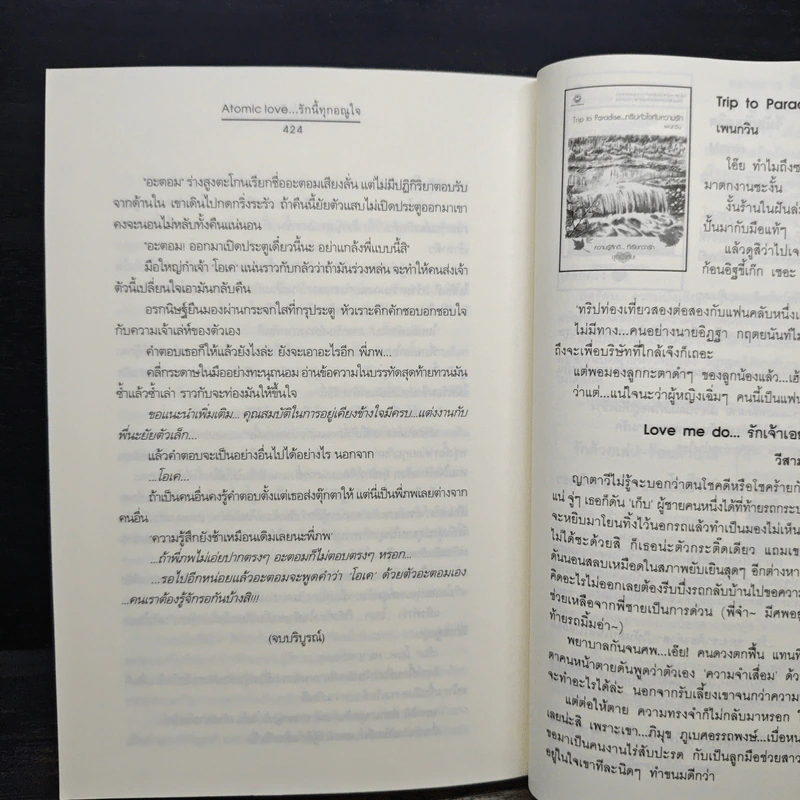 Atomic love...รักนี้ทุกอณูใจ
424
'อะตอม' ร่างสูงตะโกนเรียกชื่ออะตอมเสียงลั่น แต่ไม่มีปฏิกิริยาตอบรับ
จากด้านใน เขาเดินไปกดกริ่งระรัว ถ้าคืนนี้ยัยตัวแสบไม่เปิดประตูออกมาเขา
คงจะนอนไม่หลับทั้งคืนแน่นอน
'อะตอม! ออกมาเปิดประตูเดี๋ยวนี้นะ อย่าแกล้งพี่แบบนี้สิ'
มือใหญ่กำเจ้า 'โอเค' แน่นราวกับกลัวว่าถ้ามันร่วงหล่น จะทำให้คนส่งเจ้า
ตัวนี้เปลี่ยนใจเอามันกลับคืน
อรกนิษฐ์ยืนมองผ่านกระจกใสที่กรุประตู หัวเราะคิกคักชอบอกชอบใจ
กับความเจ้าเล่ห์ของตัวเอง
คำตอบเธอก็ให้แล้วยังไงล่ะ ยังจะเอาอะไรอีก พี่ภพ...
คลี่กระดาษในมืออย่างทะนุถนอม อ่านข้อความในบรรทัดสุดท้ายทวนมัน
ซ้ำแล้วซ้ำเล่า ราวกับจะท่องมันให้ขึ้นใจ
ขอแนะนำเพิ่มเติม... คุณสมบัติในการอยู่เคียงข้างใจมีครบ...แต่งงานกับ
พี่นะยัยตัวเล็ก...
แล้วคำตอบจะเป็นอย่างอื่นไปได้อย่างไร นอกจาก
...โอเค...
ถ้าเป็นคนอื่นคงรู้คำตอบตั้งแต่เธอส่งตุ๊กตาให้ แต่นี่เป็นพี่ภพเลยต่างจาก
คนอื่น
'ความรู้สึกยังช้าเหมือนเดิมเลยนะพี่ภพ'
...ถ้าพี่ภพไม่เอ่ยปากตรงๆ อะตอมก็ไม่ตอบตรงๆ หรอก...
...รอไปอีกหน่อยแล้วอะตอมจะพูดคำว่า 'โอเค' ด้วยตัวอะตอมเอง
...คนเราต้องรู้จักรอกันบ้างสิ!!!
(จบบริบูรณ์)
Trip to Paradise...ทริปหัวใจกับความรัก
เพนกวิน
Trip to Parad
เพนกวิน
โอ๊ย ทำไมถึงซ
มาตกงานซะงั้น
งั้นร้านในฝันล่
ปั้นมากับมือแท้ๆ
แล้วดูสิว่าไปเจ
ก้อนอิฐขี้เก๊ก เชอะ
'ทริปท่องเที่ยวสองต่อสองกับแฟนคลับหนึ่งเ
ไม่มีทาง...คนอย่างนายอิฏฐา กฤตยนันท์ไม่
ถึงจะเพื่อบริษัทที่ใกล้เจ๊งก็เถอะ
แต่พอมองลูกกะตาดำๆ ของลูกน้องแล้ว...เฮ้
ว่าแต่...แน่ใจนะว่าผู้หญิงเฉิ่มๆ คนนี้เป็นแฟน
Love me do... รักเจ้าเอย
วีสาม
ญาตาวีไม่รู้จะบอกว่าตนโชคดีหรือโชคร้ายกั
แน่ จู่ๆ เธอก็ดัน 'เก็บ' ผู้ชายคนหนึ่งได้ที่ท้ายรถกระบ
จะหยิบมาโยนทิ้งไว้นอกรถแล้วทำเป็นมองไม่เห็น
ไม่ได้ซะด้วยสิ ก็เธอน่ะตัวกระติ๊ดเดียว แถมเขา
ดันนอนสลบเหมือดในสภาพยับเยินสุดๆ อีกต่างหา
คิดอะไรไม่ออกเลยต้องรีบบึ่งรถกลับบ้านไปขอความ
ช่วยเหลือจากพี่ชายเป็นการด่วน (พี่จ๋า~ มีศพอยู่
ท้ายรถมิ้มอ่า~)
พยาบาลกันจนศพ...เอ๊ย! คนดวงตกฟื้น แทนที่
ตาคนหน้าตายดันพูดว่าตัวเอง 'ความจำเสื่อม' ด้ว
จะทำอะไรได้ล่ะ นอกจากรับเลี้ยงเขาจนกว่าความ
แต่ต่อให้ตาย ความทรงจำก็ไม่กลับมาหรอก
เลยน่ะสิ เพราะเขา...ภิมุข ภูเบศอรรถพงษ์...เบื่อหน
ขอมาเป็นคนงานไร่สับปะรด กับเป็นลูกมือช่วยสาว
อยู่ในใจเขาทีละนิดๆ ทำขนมดีกว่า